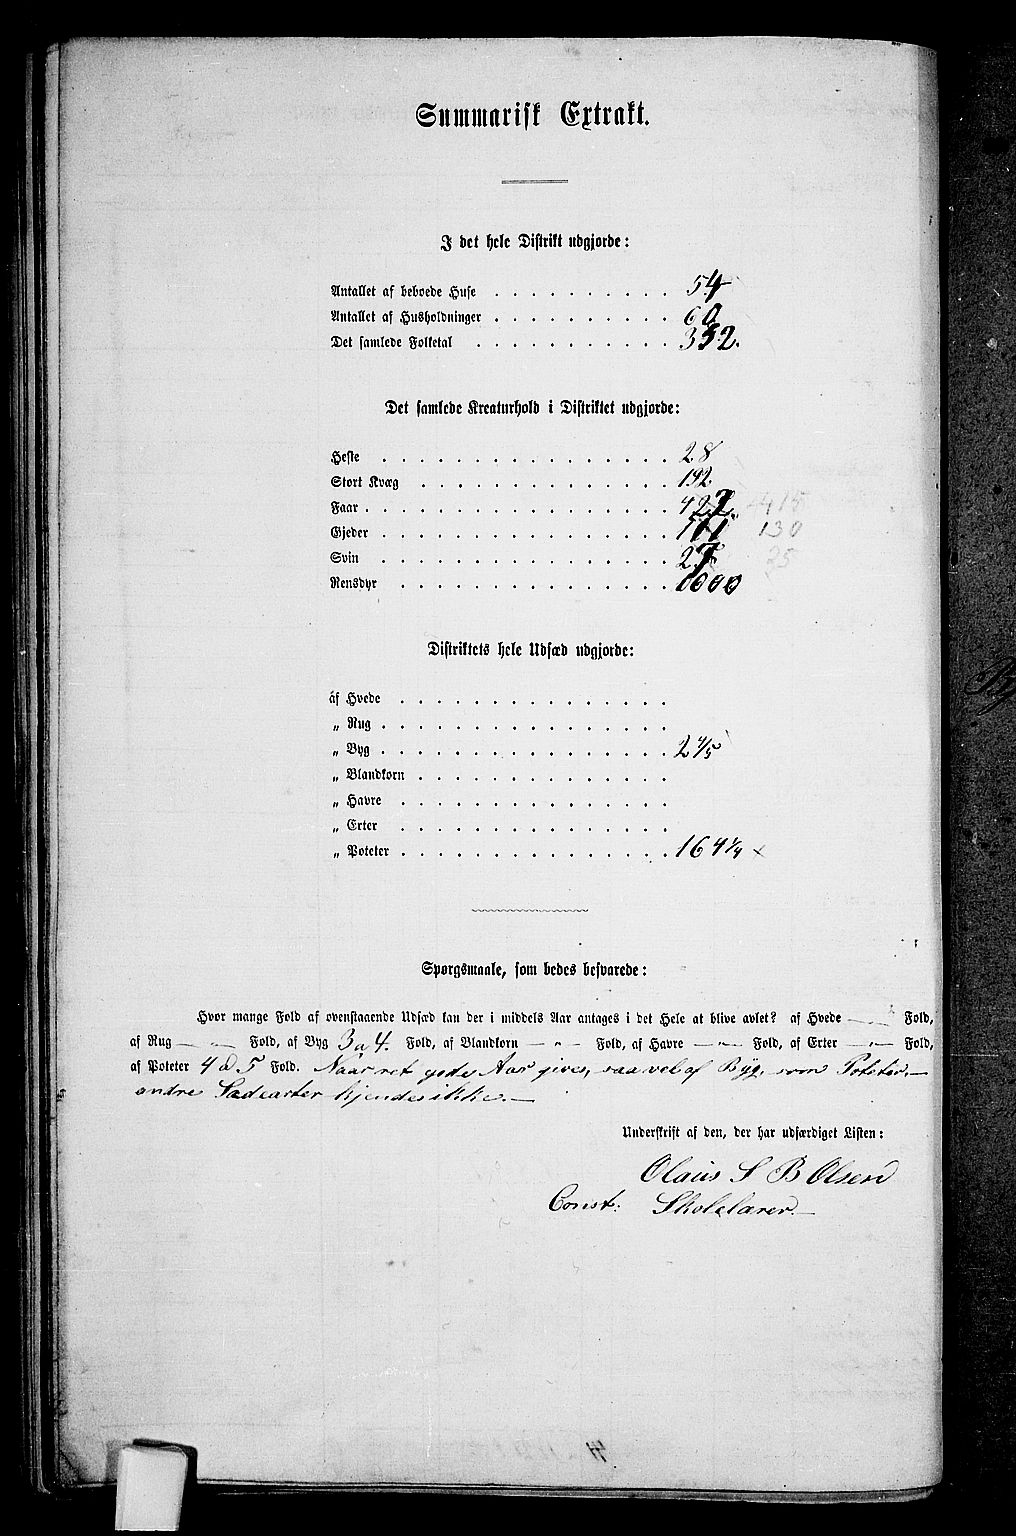 Summarisk Extrakt.
I det hele Distrikt udgjorde:
Antallet af beboede Huse . . . . . . . . . . 54
Antallet af Husholdninger . . . . . . . . . . 60
Det samlede Folketal . . . . . . . . . . . 352.
Det samlede Kreaturhold i Distriktet udgjorde:
Heste . . . . . . . . . . . . . . . . 28
Stort Kvæg . . . . . . . . . . . . . . 192.
Faar . . . . . . . . . . . . . . . . . 422. 415
Gjeder . . . . . . . . . . . . . . . . 130
Svin . . . . . . . . . . . . . . . . 27 25
Rensdyr . . . . . . . . . . . . . . .
Distriktets hele Udsæd udgjorde:
af Hvede . . . . . . . . . . . . . . .
„ Rug . . . . . . . . . . . . . . . .
„ Byg . . . . . . . . . . . . . . . . 2 4/5
„ Blandkorn . . . . . . . . . . . . . .
„ Havre . . . . . . . . . . . . . . .
„ Erter . . . . . . . . . . . . . . .
„ Poteter . . . . . . . . . . . . . . . 164 1/4 ×
Spørgsmaale, som bedes besvarede:
Hvor mange Fold af ovenstaaende Udsæd kan der i middels Aar antages i det Hele at blive avlet? af Hvede — „ — Fold,
af Rug — „ — Fold, af Byg 3 a 4. Fold, af Blandkorn — „ — Fold, af Havre — „ — Fold, af Erter — „ — Fold,
af Poteter 4 a 5 Fold. Naar ret gode Aar gives, saavel af Byg, som Poteter. —
andre Sædearter kjendes ikke. —
Underskrift af den, der har udfærdiget Listen:
Olaus S B Olsen
Const: Skolelærer. —